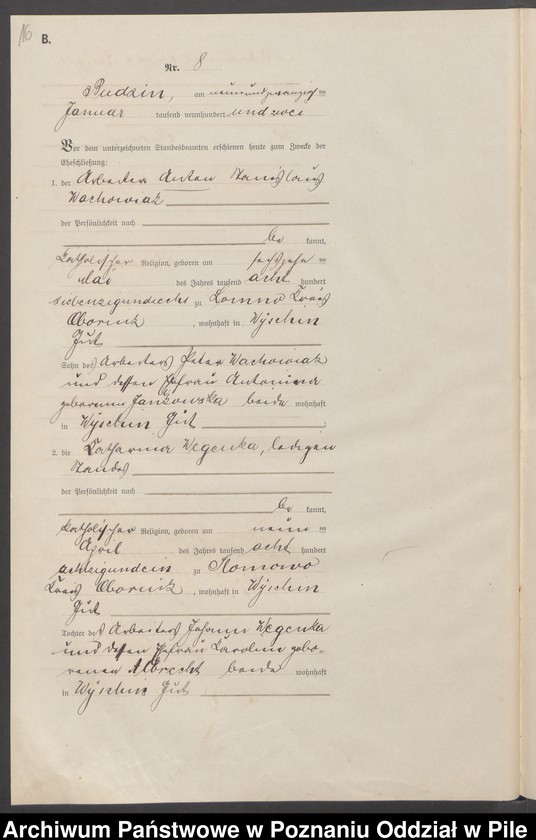 16
B.
Nr. 8
Budzin, am neunundzwanzig ten
Januar tausend neunhundert und zwei
Vor dem unterzeichneten Standesbeamten erschienen heute zum Zwecke der
Eheschließung:
1. der Arbeiter Anton Stanislaus
Wachowiak
der Persönlichkeit nach
be kannt,
katholischer Religion, geboren am sechszehn ten
Mai des Jahres tausend acht hundert
siebenzigundsechs zu Lomno Kreis
Obornik, wohnhaft in Wyschin
Gut
Sohn des Arbeiters Peter Wachowiak
und dessen Ehefrau Antonina
geborenen Jankowska beide wohnhaft
in Wyschin Gut ;
2. die Katharina Wegenka, ledigen
Standes
der Persönlichkeit nach
be kannt,
katholischer Religion, geboren am neun ten
April des Jahres tausend acht hundert
achtzigundein zu Slomowo
Kreis Obornik, wohnhaft in Wyschin
Gut
Tochter des Arbeiters Johann Wegenka
und dessen Ehefrau Karoline gebo-
renen Albrecht beide wohnhaft
in Wyschin Gut
Archiwum Państwowe w Poznaniu Oddział w Pile